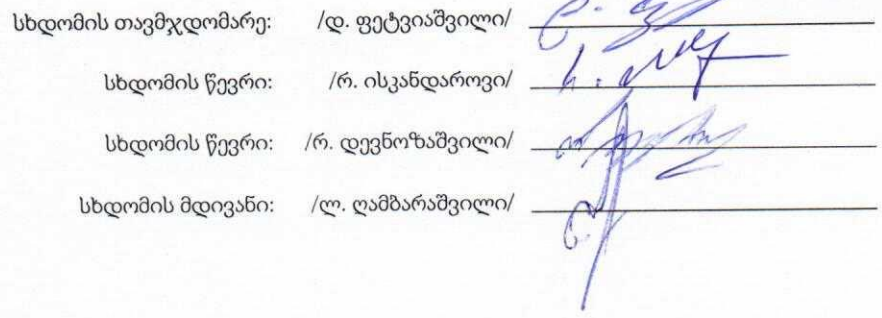 სხდომის თავმჯდომარე: /დ. ფეტვიაშვილი/
სხდომის წევრი: /რ. ისკანდაროვი/
სხდომის წევრი: /რ. დევნოზაშვილი/
სხდომის მდივანი: /ლ. ღამბარაშვილი/